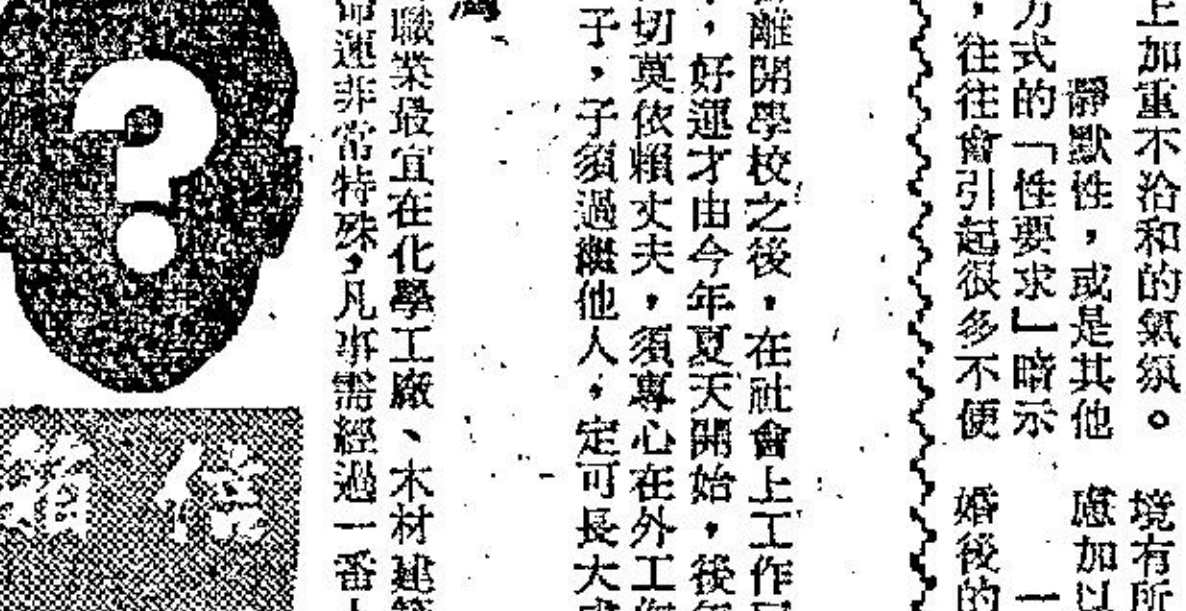 上加重不洽和的氣氛。
靜默性,或是其他
方式的「性要求」暗示
,往往會引起很多不便
境有所
慮加以
一
婚後的
離開學校之後,在社會上工作
,好運才由今年夏天開始,後年
切莫依賴丈夫,須專心在外工作
子,子須過繼他人,定可長大成
職業最宜在化學工廠、木材建築
命運非常特殊,凡事需經過一番
?
信箱